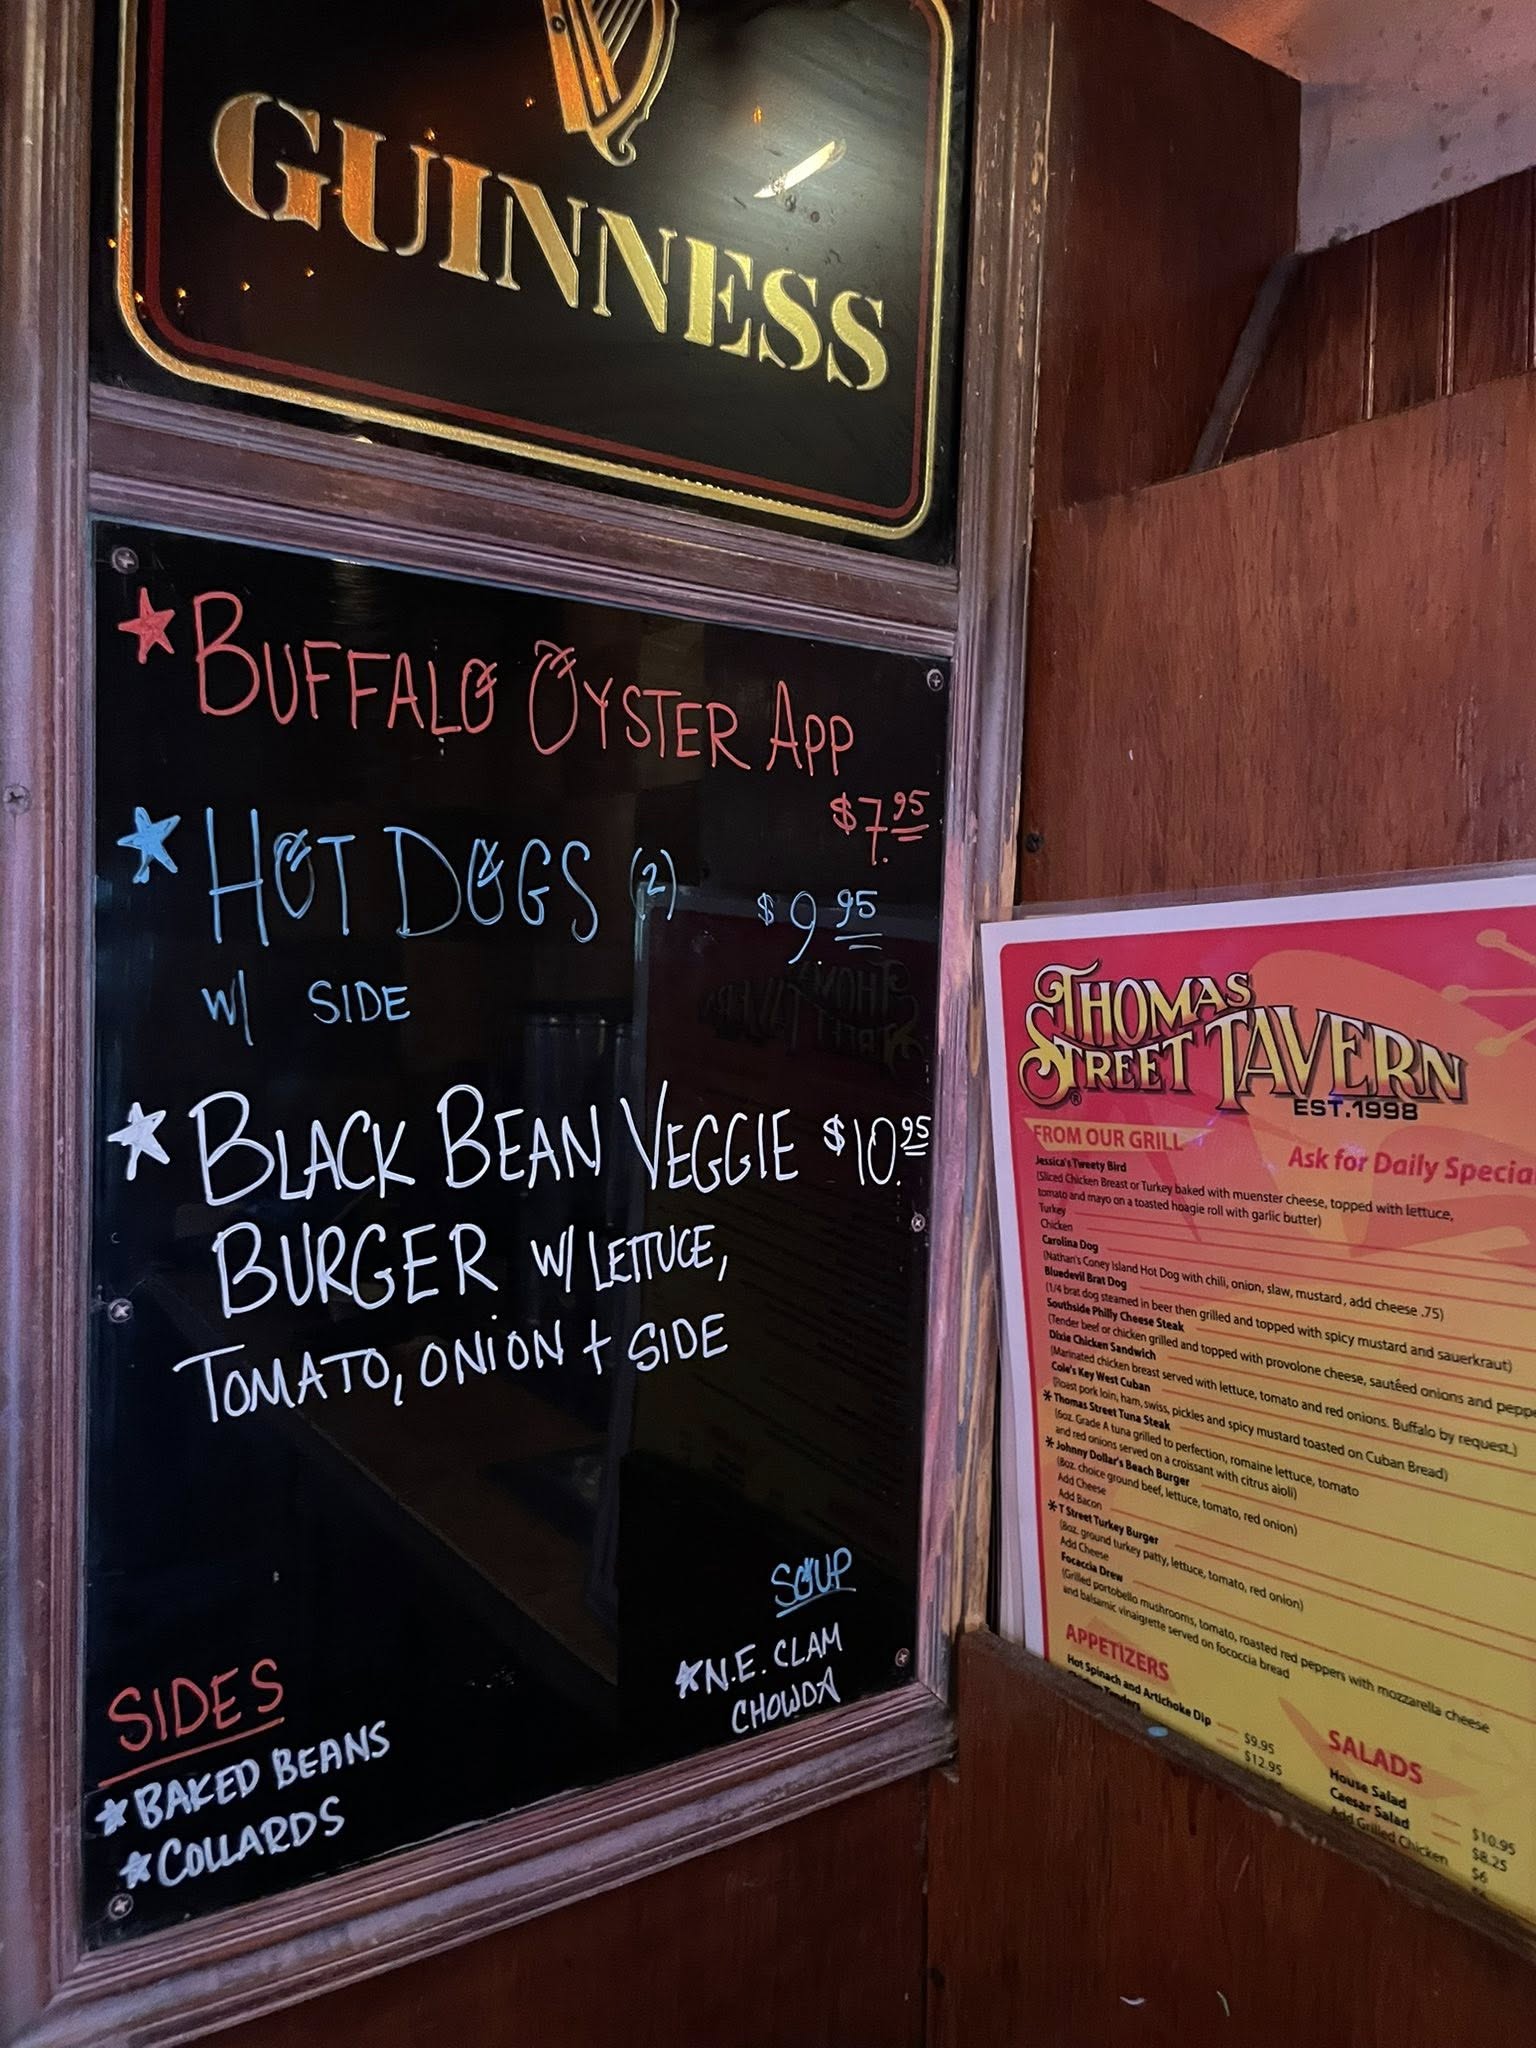 GUINNESS
BUFFALO OYSTER APP
$7.95
HOT DOGS (2) $9.95
W/ SIDE
BLACK BEAN VEGGIE $10.95
BURGER W/ LETTUCE,
TOMATO, ONION + SIDE
SOUP
N.E. CLAM
CHOWDA
SIDES
BAKED BEANS
COLLARDS
THOMAS
STREET TAVERN
EST.1998
FROM OUR GRILL
Ask for Daily Specia
Jessica's Tweety Bird
(Sliced Chicken Breast or Turkey baked with muenster cheese, topped with lettuce,
tomato and mayo on a toasted hoagie roll with garlic butter)
Turkey
Chicken
Carolina Dog
(Nathan's Coney Island Hot Dog with chili, onion, slaw, mustard, add cheese .75)
Bluedevil Brat Dog
(1/4 brat dog steamed in beer then grilled and topped with spicy mustard and sauerkraut)
Southside Philly Cheese Steak
(Tender beef or chicken grilled and topped with provolone cheese, sautéed onions and peppe
Dixie Chicken Sandwich
(Marinated chicken breast served with lettuce, tomato and red onions. Buffalo by request.)
Cole's Key West Cuban
(Roast pork loin, ham, swiss, pickles and spicy mustard toasted on Cuban Bread)
* Thomas Street Tuna Steak
(6oz. Grade A tuna grilled to perfection, romaine lettuce, tomato
and red onions served on a croissant with citrus aioli)
* Johnny Dollar's Beach Burger
(8oz. choice ground beef, lettuce, tomato, red onion)
Add Cheese
Add Bacon
* T Street Turkey Burger
(8oz. ground turkey patty, lettuce, tomato, red onion)
Add Cheese
Focaccia Drew
(Grilled portobello mushrooms, tomato, roasted red peppers with mozzarella cheese
and balsamic vinaigrette served on fococcia bread
APPETIZERS
Hot Spinach and Artichoke Dip $9.95
Chicken Tenders $12.95
SALADS
House Salad $10.95
Caesar Salad $8.25
Add Grilled Chicken $6